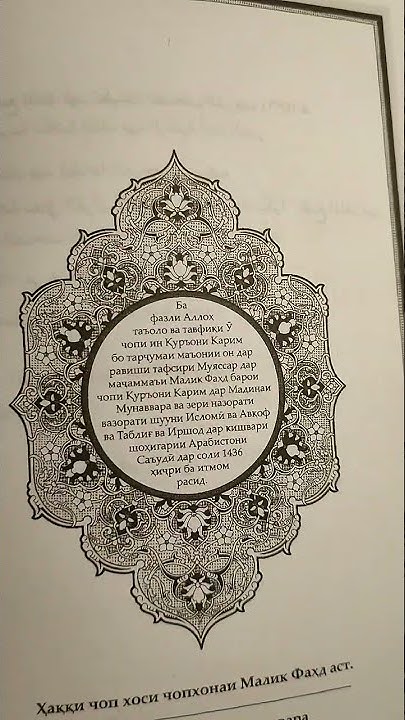 Ба
фазли Аллоҳ
таъоло ва тавфиқи Ӯ
чопи ин Қуръони Карим
бо тарҷумаи маъонии он дар
равиши тафсири Муяссар дар
маҷаммаъи Малик Фаҳд барои
чопи Қуръони Карим дар Мадинаи
Мунаввара ва зери назорати
вазорати шууни Исломӣ ва Авкоф
ва Таблиғ ва Иршод дар кишвари
шоҳигарии Арабистони
Саъудӣ дар соли 1436
ҳиҷри ба итмом
расид.
Ҳаққи чоп хоси чопхонаи Малик Фаҳд аст.